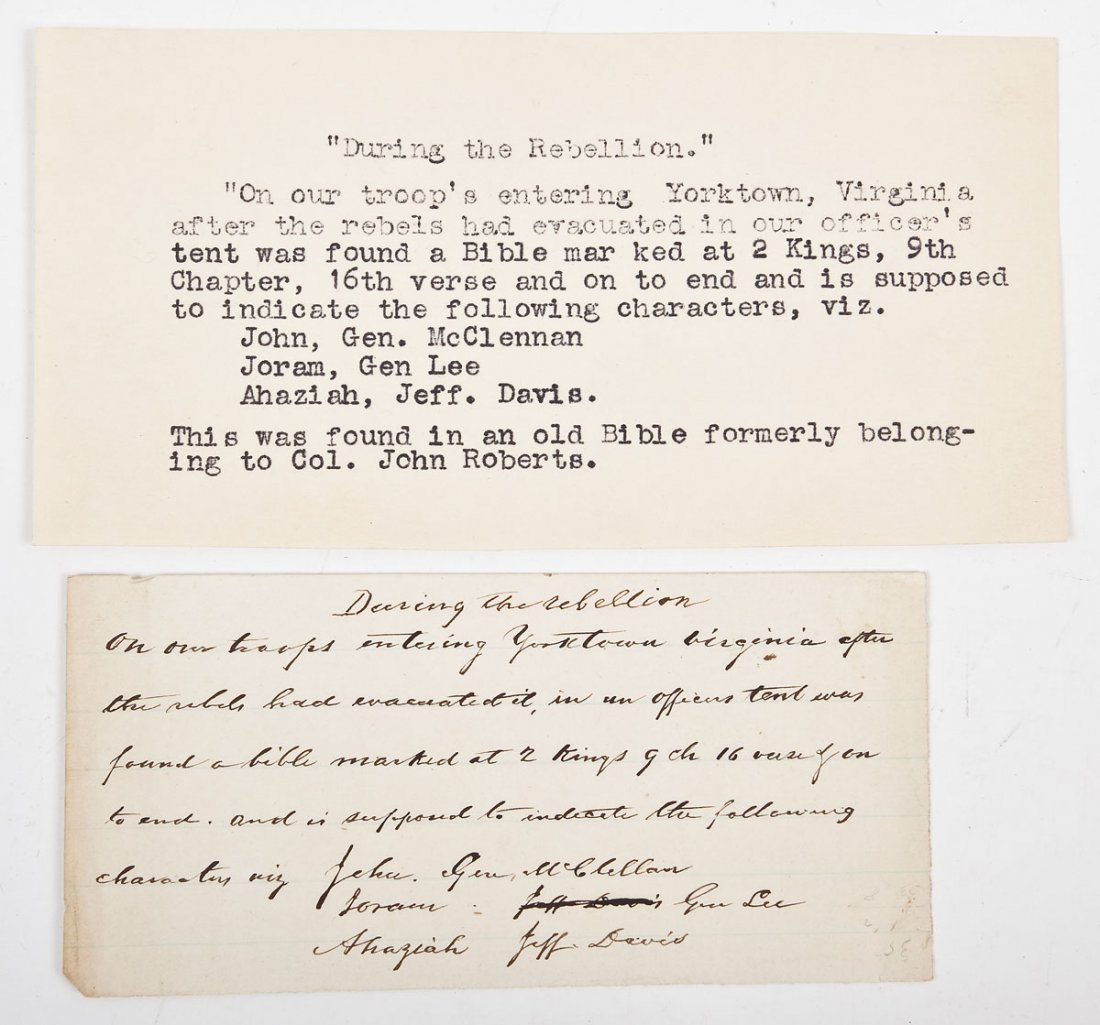 "During the Rebellion."
"On our troop's entering Yorktown, Virginia
after the rebels had evacuated in our officer's
tent was found a Bible mar ked at 2 Kings, 9th
Chapter, 16th verse and on to end and is supposed
to indicate the following characters, viz.
John, Gen. McClennan
Joram, Gen Lee
Ahaziah, Jeff. Davis.
This was found in an old Bible formerly belong-
ing to Col. John Roberts.
During the rebellion
On our troops entering Yorktown Virginia after
the rebels had evacuated it, in an officers tent was
found a bible marked at 2 Kings 9 ch 16 verse & on
to end. and is supposed to indicate the following
characters viz Jehu. Gen. McClellan
Joram . Jeff Davis Gen Lee
Ahaziah Jeff. Davis